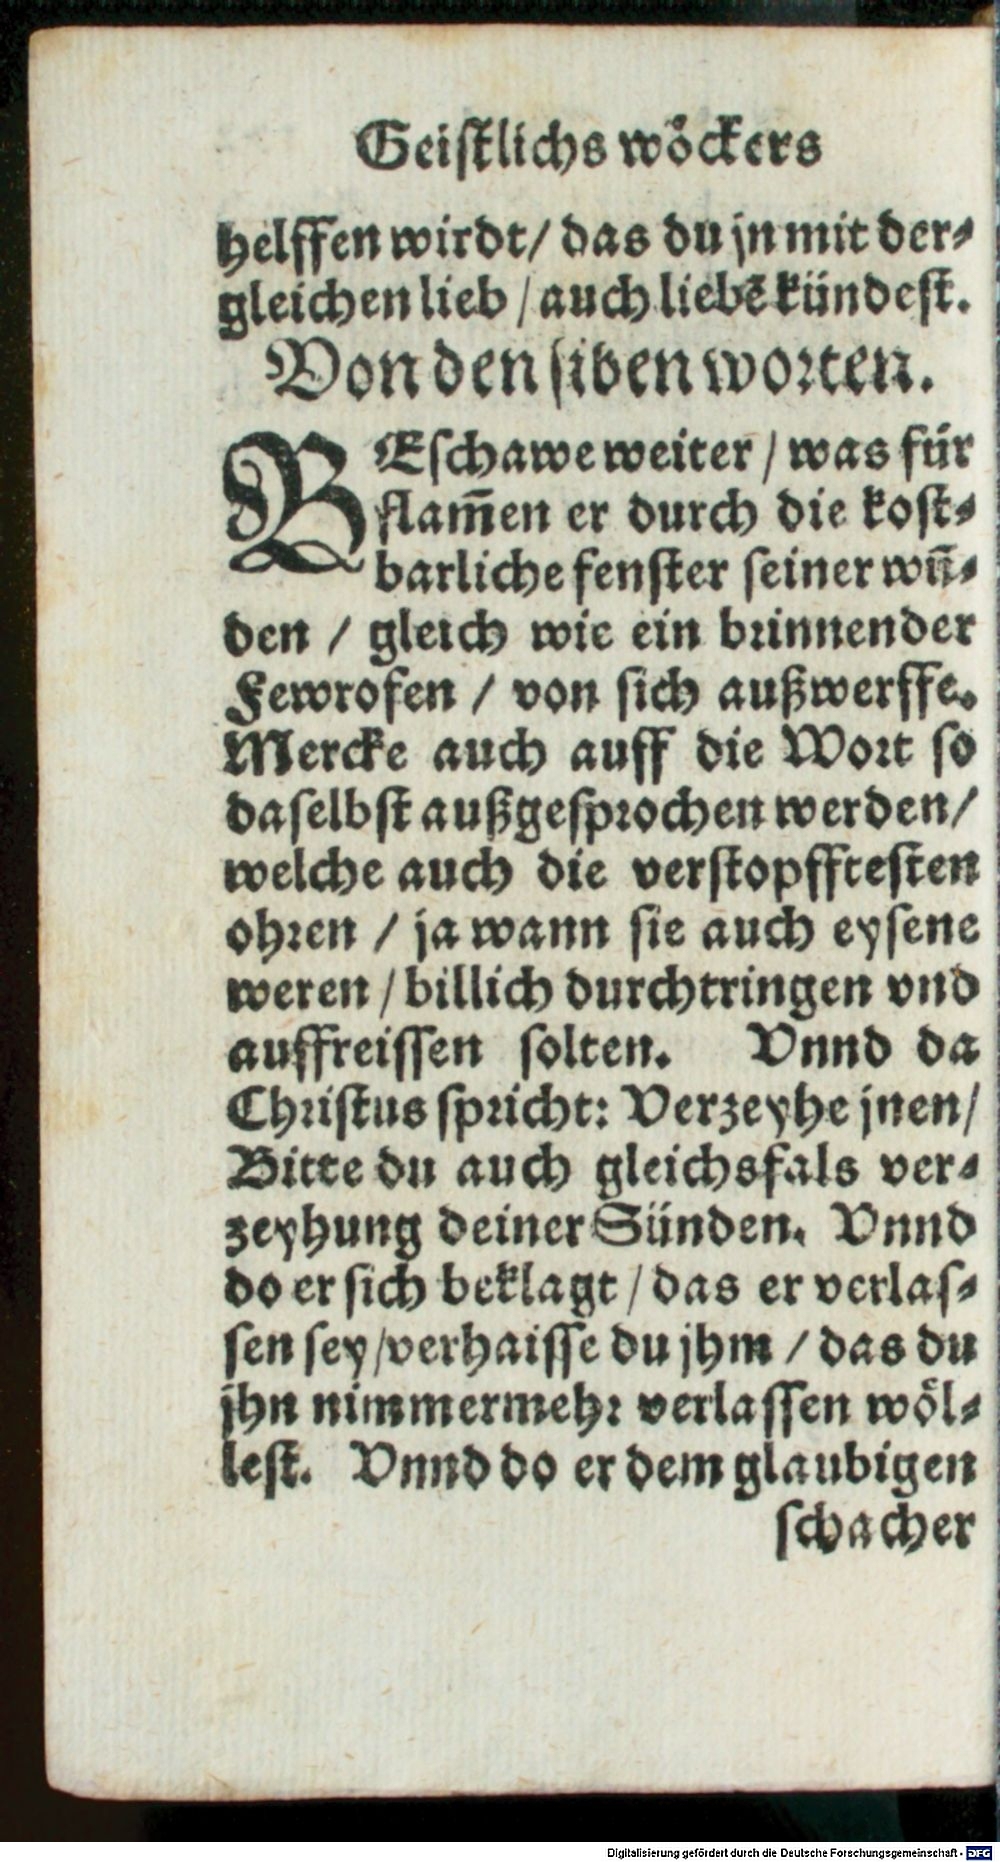 Geistlichs wöckers
helffen wirdt/ das du jn mit der⸗
gleichen lieb / auch liebē kündest.
Von den siben worten.
BEschawe weiter / was für
flam̃en er durch die kost⸗
barliche fenster seiner wū⸗
den / gleich wie ein brinnender
Fewrofen / von sich außwerffe.
Mercke auch auff die Wort so
daselbst außgesprochen werden/
welche auch die verstopfftesten
ohren / ja wann sie auch eysene
weren / billich durchtringen vnd
auffreissen solten. Vnnd da
Christus spricht: Verzeyhe jnen/
Bitte du auch gleichsfals ver⸗
zeyhung deiner Sünden. Vnnd
do er sich beklagt / das er verlas⸗
sen sey/verhaisse du jhm / das du
jhn nimmermehr verlassen wöl⸗
lest. Vnnd do er dem glaubigen
schacher
Digitalisierung gefördert durch die Deutsche Forschungsgemeinschaft - DFG